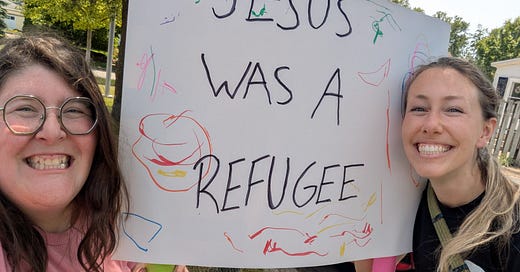 JESUS
WAS A
REFUGEE